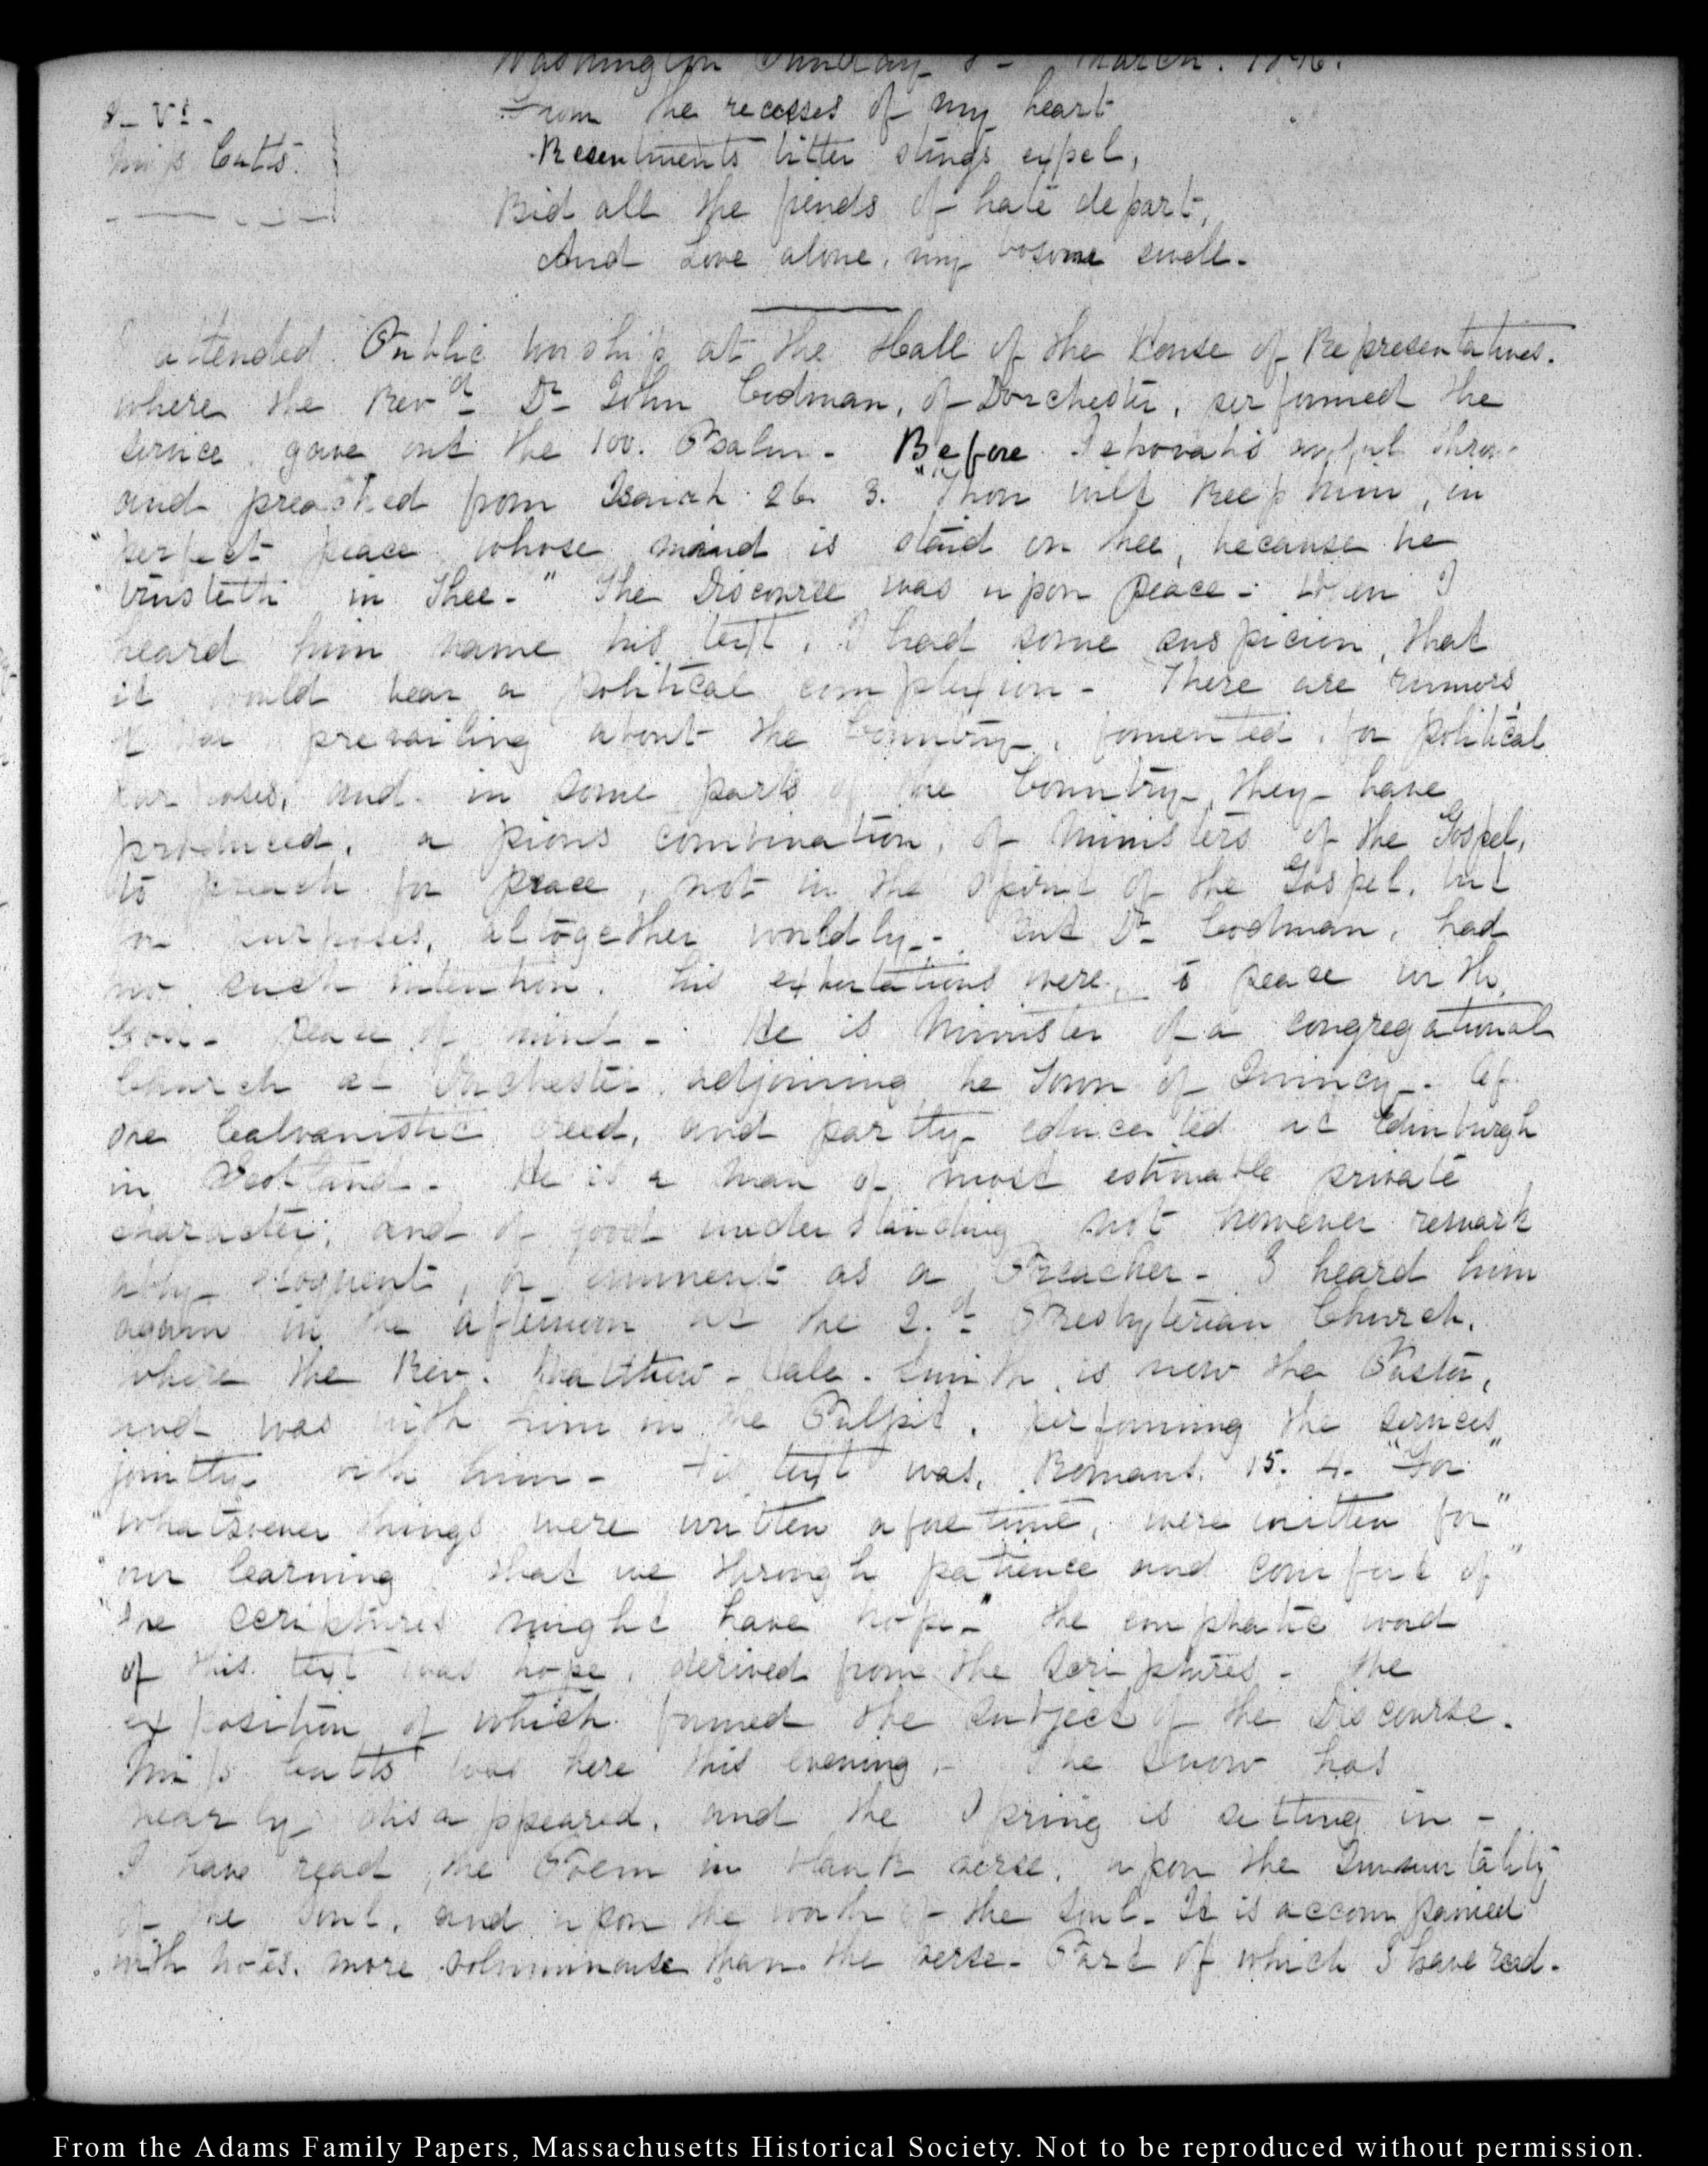 Washington Sunday 8- March. 1846.
8- VI-
Miss Cutts.
From the recesses of my heart
Resentments bitter stings expel,
Bid all the fiends of hate depart,
And Love alone, my bosome swell-
I attended Public worship at the Hall of the House of Representatives.
where the Revd Dr John Codman, of Dorchester, performed the
service. gave out the 100. Psalm- Before Jehovah's awful throne
and preached from Isaiah 26. 3. "Thou wilt keep him, in
"perfect peace whose mind is staid on thee, because he
"trusteth in Thee-" The Discourse was upon peace- When I
heard him name his text, I had some suspicion, that
it would bear a political complexion- There are rumors
of War prevailing about the Country, fomented, for political
purposes, and in some parts of the Country, they have
produced, a pious combination, of Ministers of the Gospel,
to preach for peace, not in the spirit of the Gospel, but
for purposes, altogether worldly- But Dr Codman, had
no such intention. his exhortations were, to peace with
God- Peace of mind- He is Minister of a congregational
Church at Dorchester, adjoining the Town of Quincy- Of
the Calvanistic creed, and partly educated at Edinburgh
in Scotland- He is a man of most estimable private
character, and of good understanding not however remark
ably eloquent, or eminent as a Preacher- I heard him
again in the afternoon at the 2.d Presbyterian Church,
where the Rev. Matthew-Hale-Smith, is now the Pastor,
and was with him in the Pulpit, performing the services
jointly with him- His text was, Romans. 15. 4. "For"
"whatsoever things were written aforetime, were written for"
"our learning that we through patience and comfort of"
"the scriptures might have hope-" the emphatic word
of this text was hope, derived from the Scriptures- the
exposition of which formed the subject of the Discourse.
Miss Cutts was here this evening,- The Snow has
nearly disappeared, and the Spring is setting in-
I have read the Poem in blank verse, upon the Immortality
of the Soul, and upon the worth of the Soul- It is accompanied
with notes, more voluminouse than the verse- Part of which I have read-
From the Adams Family Papers, Massachusetts Historical Society. Not to be reproduced without permission.